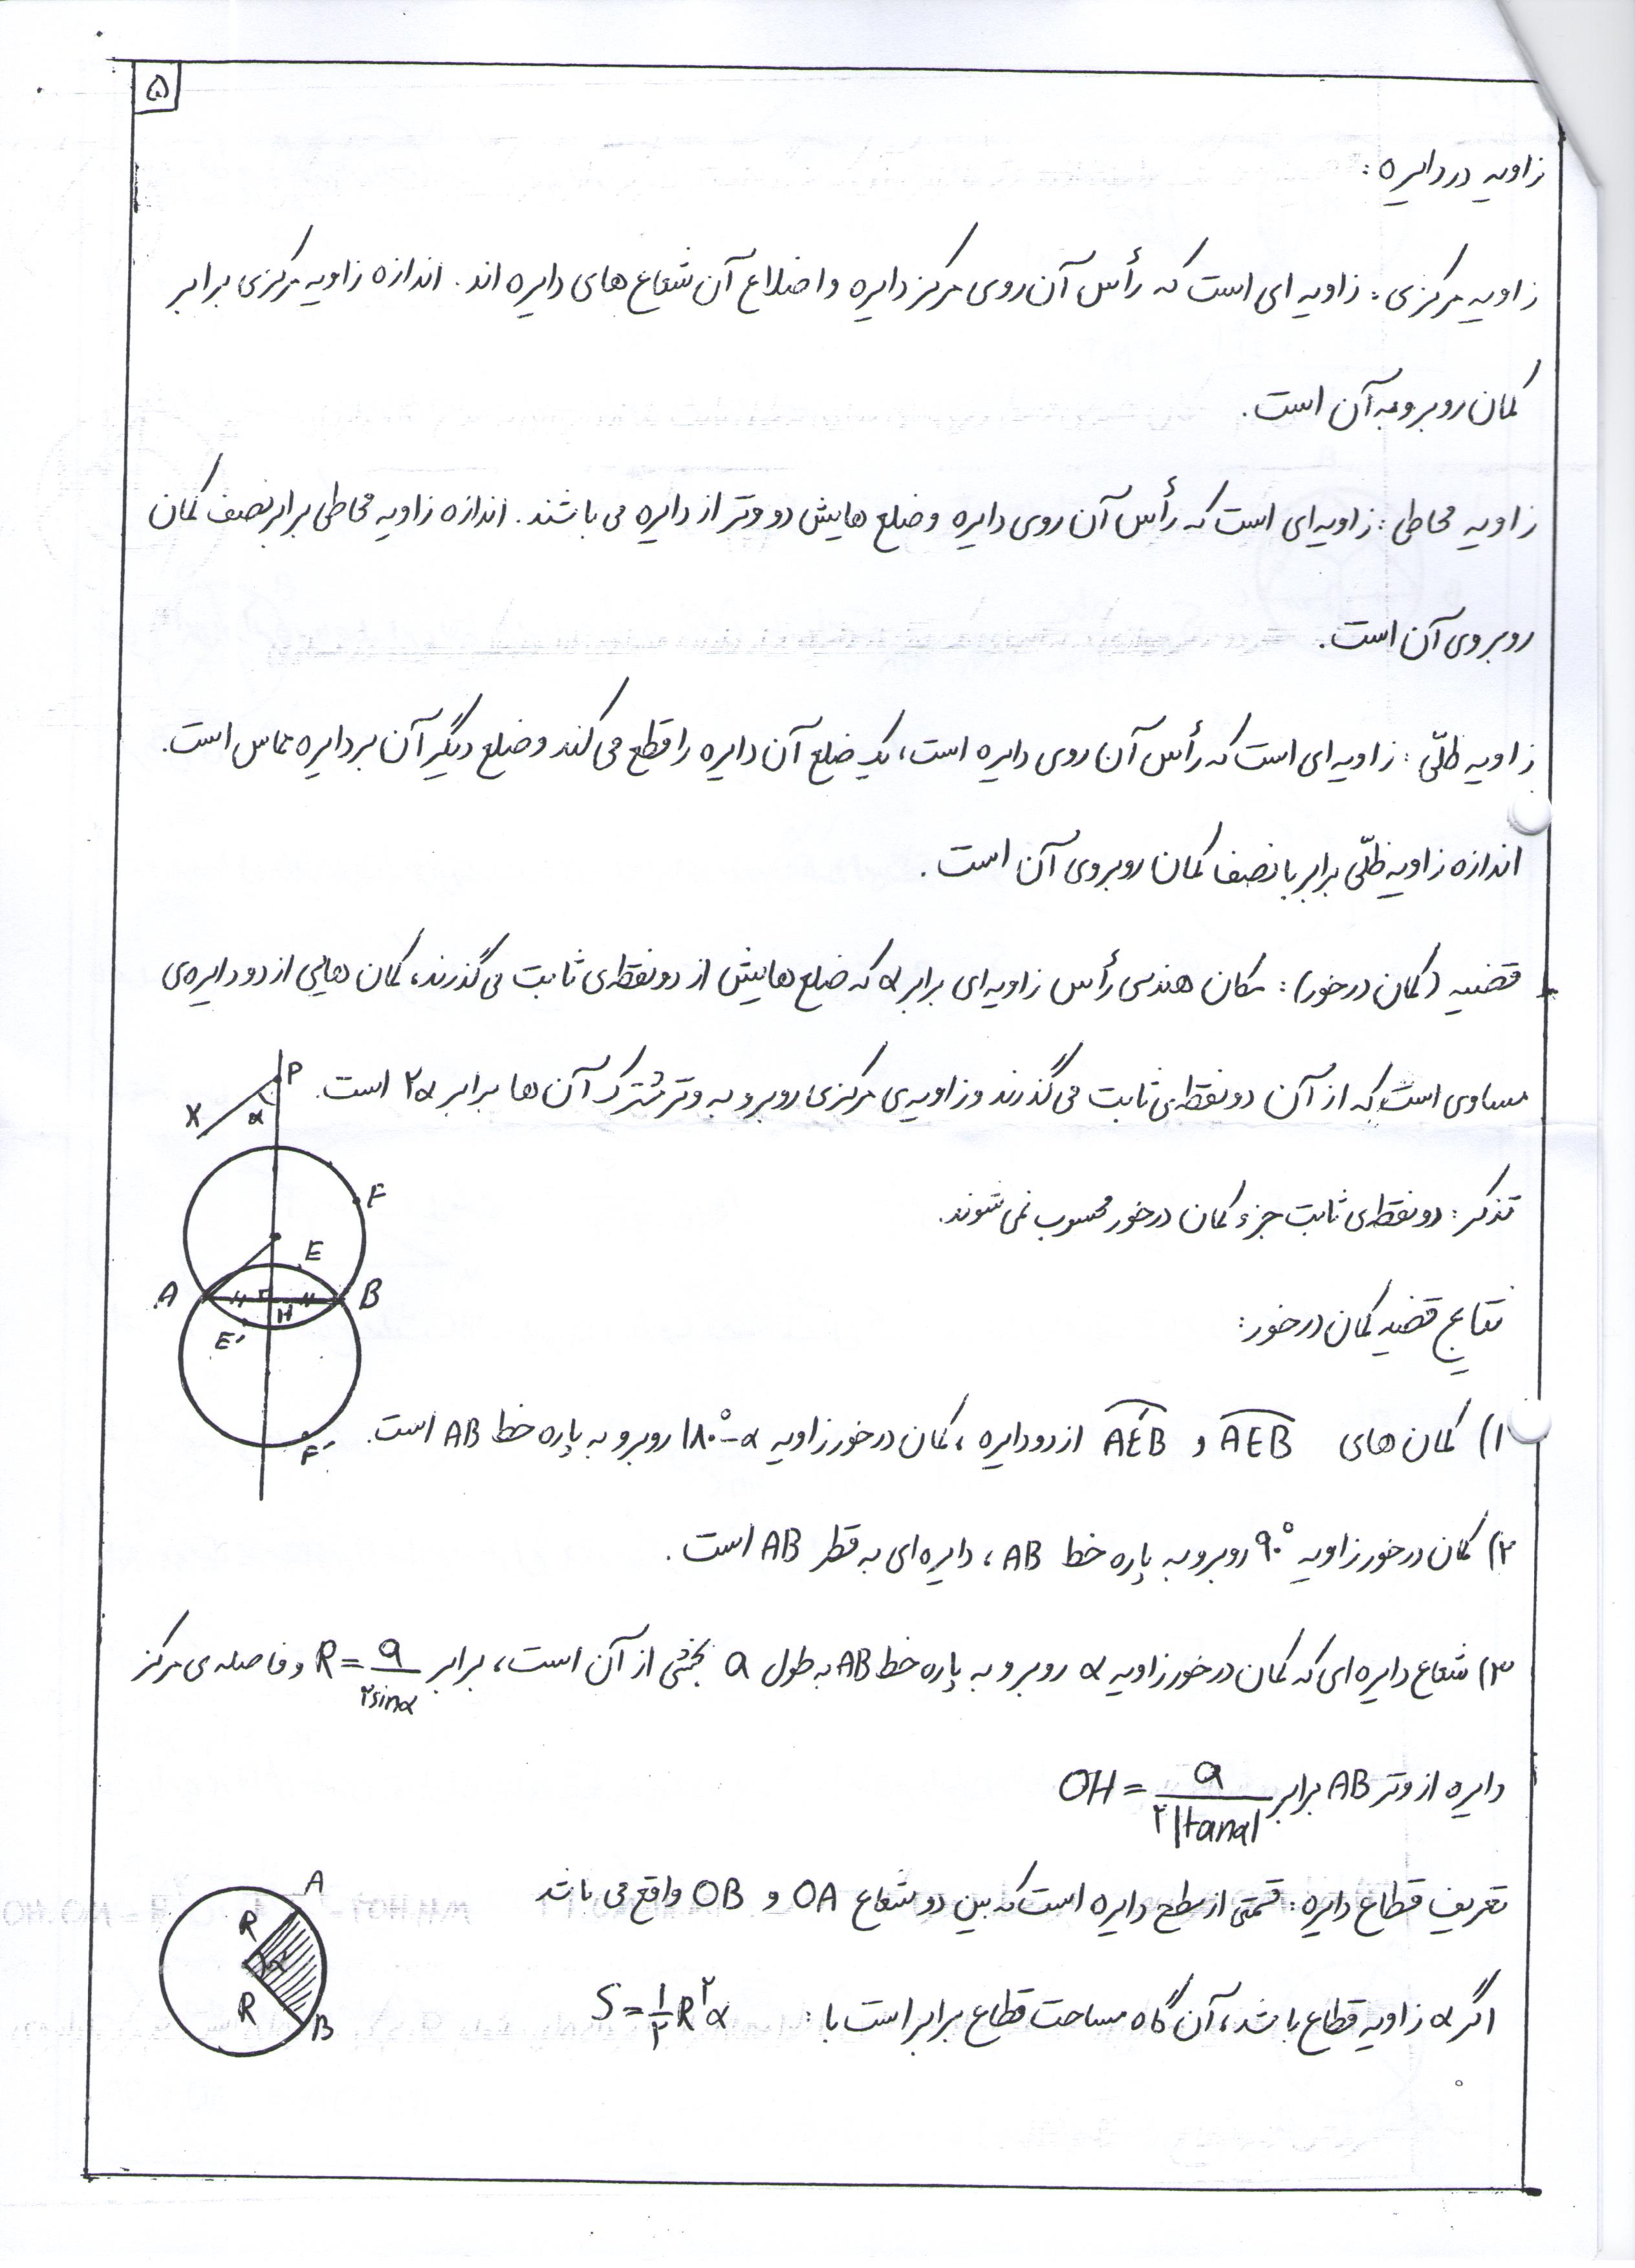 ۵
زاویه در دایره:
زاویه مرکزی: زاویه ای است که رأس آن روی مرکز دایره و اضلاع آن شعاع های دایره اند. اندازه زاویه مرکزی برابر
کمان روبرو به آن است.
زاویه محاطی: زاویه ای است که رأس آن روی دایره و ضلع هایش دو وتر از دایره می باشند. اندازه زاویه محاطی برابر نصف کمان
روبروی آن است.
زاویه ظلّی: زاویه ای است که رأس آن روی دایره است، یک ضلع آن دایره را قطع می کند و ضلع دیگر آن بر دایره مماس است.
اندازه زاویه ظلّی برابر با نصف کمان روبروی آن است.
قضیه (کمان درخور): مکان هندسی رأس زاویه ای برابر α که ضلع هایش از دو نقطه ی ثابت می گذرند، کمان هایی از دو دایره ی
مساوی است که از آن دو نقطه ی ثابت می گذرند و زاویه ی مرکزی روبرو به وتر مشترک آن ها برابر ۲α است.
P
X
α
F
E
A
B
H
E'
F'
تذکر: دو نقطه ی ثابت جزء کمان درخور محسوب نمی شوند.
نتایج قضیه کمان درخور:
۱) کمان های AEB و AE'B از دو دایره، کمان درخور زاویه ۱۸۰°-α روبرو به پاره خط AB است.
۲) کمان درخور زاویه ۹۰° روبرو به پاره خط AB، دایره ای به قطر AB است.
۳) شعاع دایره ای که کمان درخور زاویه α روبرو به پاره خط AB به طول a بخشی از آن است، برابر R = a/۲sinα و فاصله ی مرکز
دایره از وتر AB برابر OH = a/۲|tanα|
تعریف قطاع دایره: قسمتی از سطح دایره است که بین دو شعاع OA و OB واقع می باشد
اگر α زاویه قطاع باشد، آن گاه مساحت قطاع برابر است با: S = ۱/۲ R²α
A
R
α
R
B